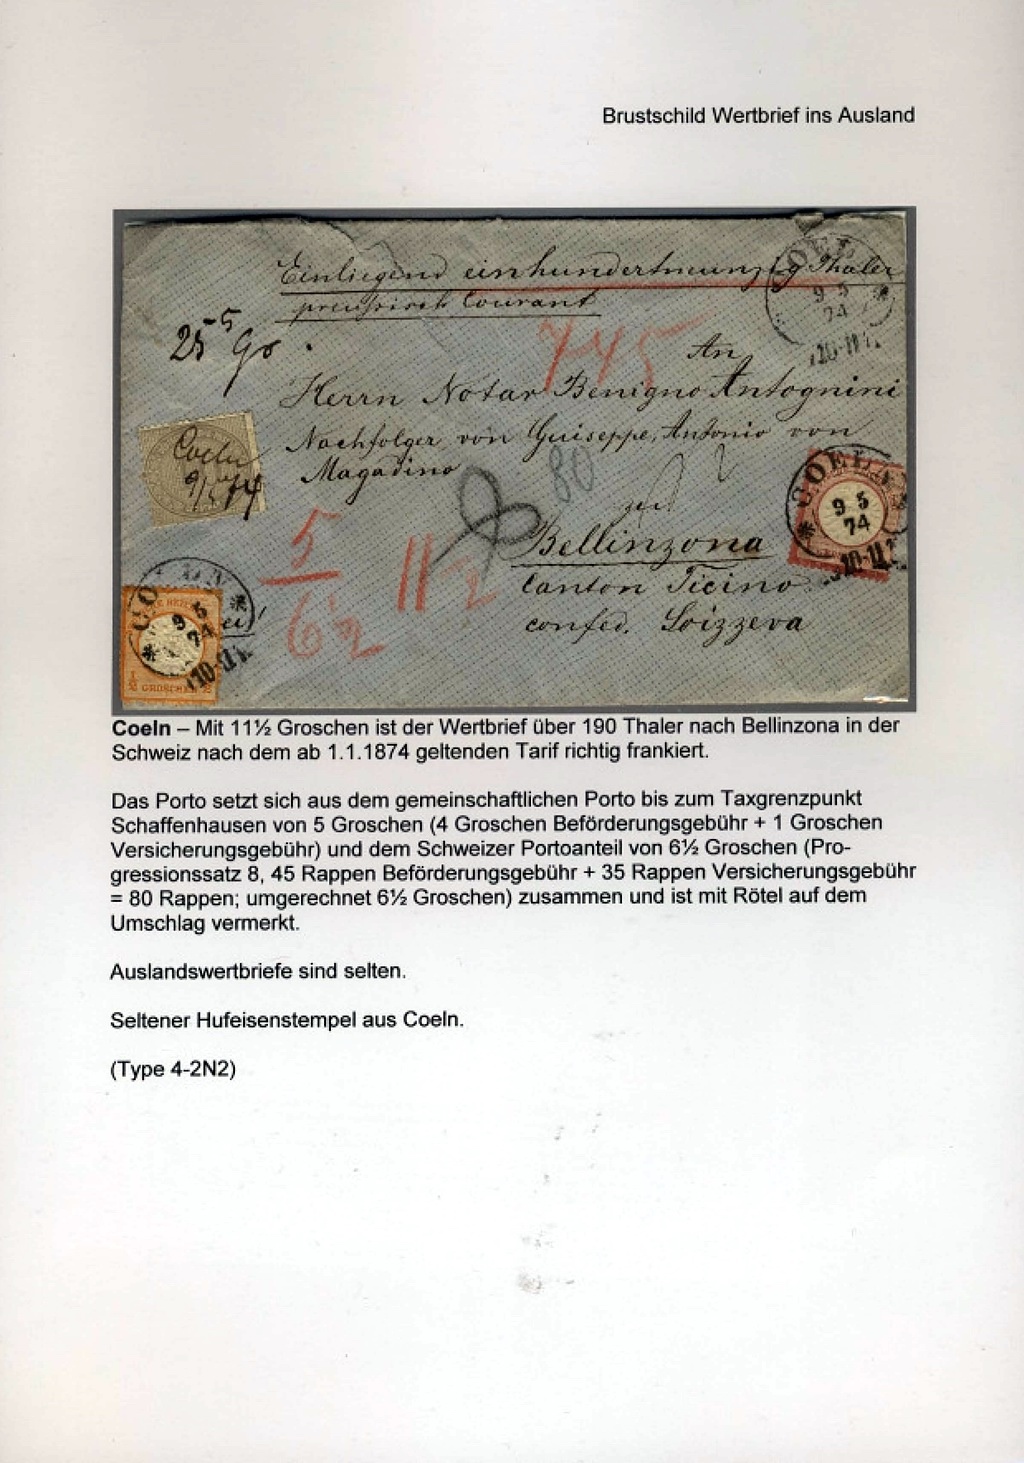 Brustschild Wertbrief ins Ausland
Einliegend einhundertneunzig Thaler
preußisch Courant
COELN
9 5
74
10-11
25 5 Gr.
745
An
Herrn Notar Benigno Antognini
Nachfolger von Guiseppe, Antonio von
Magadino
Coeln
9/5 74
80
COELN
9 5
74
10-11
5
6½
11½
Bellinzona
Canton Ticino
confed. Soizzera
COELN
9 5
74
10-11
½ GROSCHEN ½
Coeln – Mit 11½ Groschen ist der Wertbrief über 190 Thaler nach Bellinzona in der
Schweiz nach dem ab 1.1.1874 geltenden Tarif richtig frankiert.
Das Porto setzt sich aus dem gemeinschaftlichen Porto bis zum Taxgrenzpunkt
Schaffenhausen von 5 Groschen (4 Groschen Beförderungsgebühr + 1 Groschen
Versicherungsgebühr) und dem Schweizer Portoanteil von 6½ Groschen (Pro-
gressionssatz 8, 45 Rappen Beförderungsgebühr + 35 Rappen Versicherungsgebühr
= 80 Rappen; umgerechnet 6½ Groschen) zusammen und ist mit Rötel auf dem
Umschlag vermerkt.
Auslandswertbriefe sind selten.
Seltener Hufeisenstempel aus Coeln.
(Type 4-2N2)